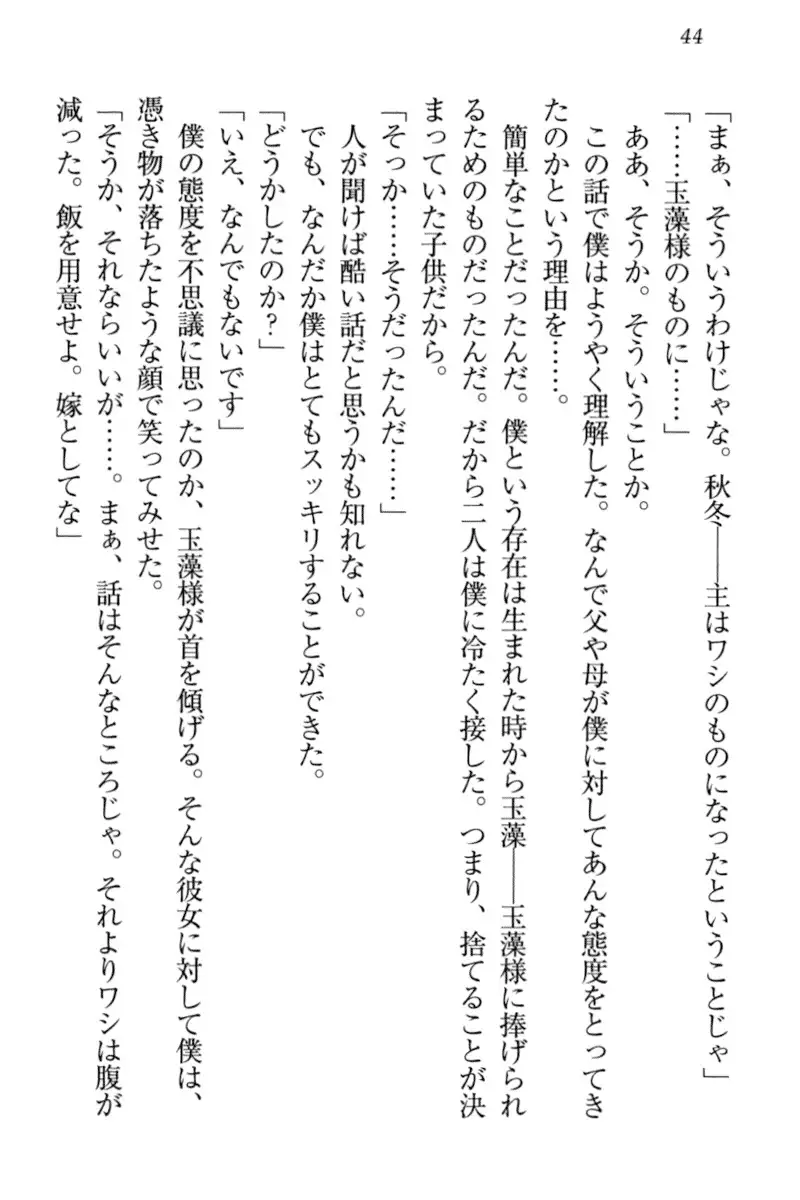 44
「まぁ、そういうわけじゃな。秋冬――主はワシのものになったということじゃ」
「……玉藻様のものに……」
　ああ、そうか。そういうことか。
　この話で僕はようやく理解した。なんで父や母が僕に対してあんな態度をとってき
たのかという理由を……。
　簡単なことだったんだ。僕という存在は生まれた時から玉藻――玉藻様に捧げられ
るためのものだったんだ。だから二人は僕に冷たく接した。つまり、捨てることが決
まっていた子供だから。
「そっか……そうだったんだ……」
　人が聞けば酷い話だと思うかも知れない。
　でも、なんだか僕はとてもスッキリすることができた。
「どうかしたのか？」
「いえ、なんでもないです」
　僕の態度を不思議に思ったのか、玉藻様が首を傾げる。そんな彼女に対して僕は、
憑き物が落ちたような顔で笑ってみせた。
「そうか、それならいいが……。まぁ、話はそんなところじゃ。それよりワシは腹が
減った。飯を用意せよ。嫁としてな」